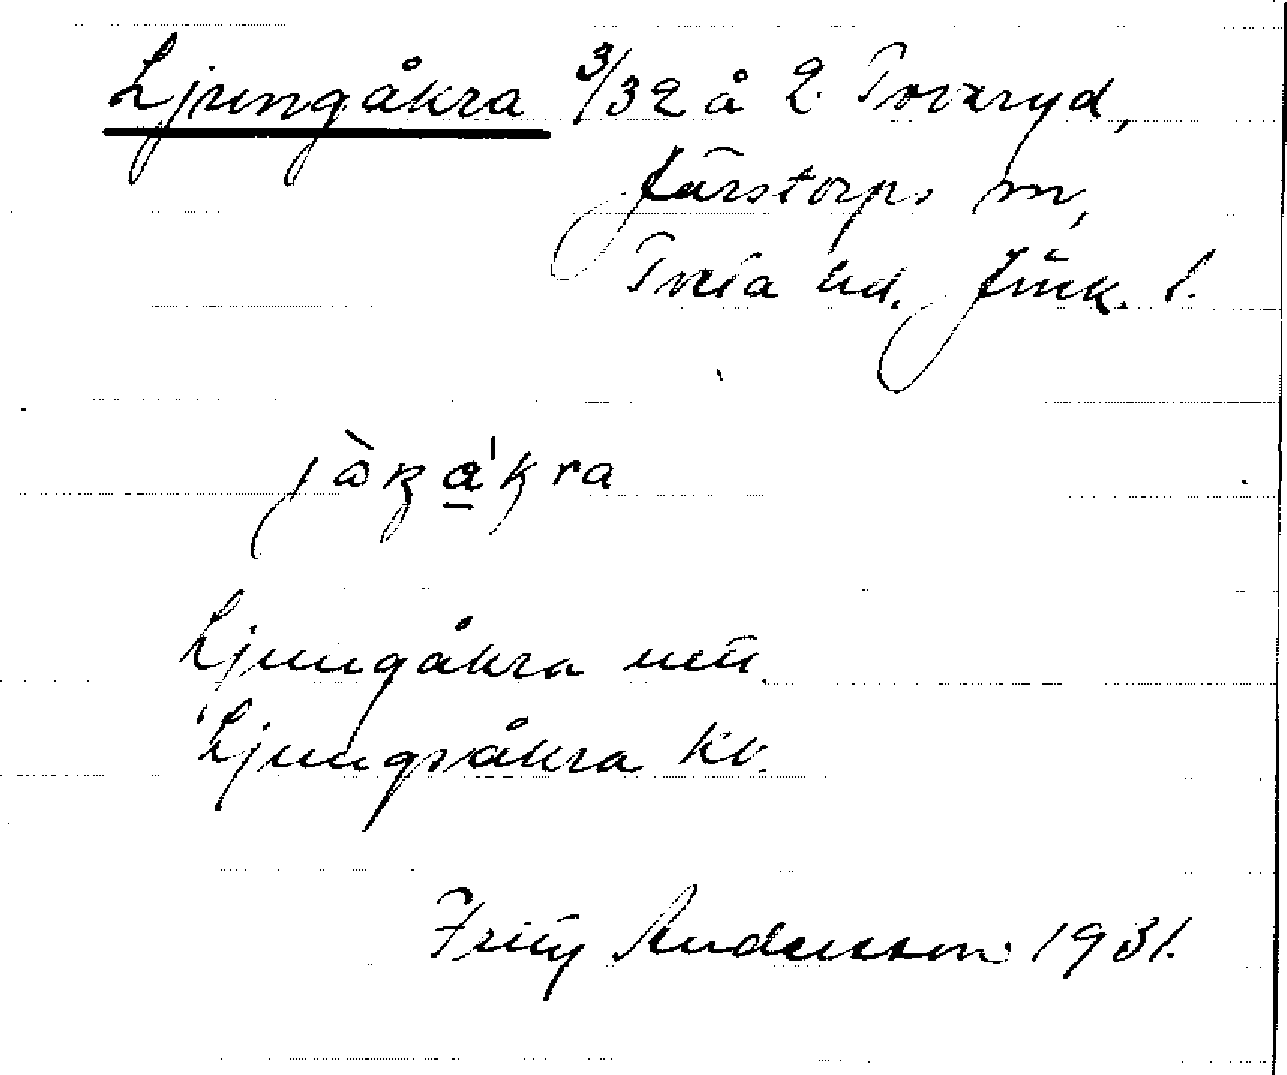 Ljungåkra 3/32 å 2. Tovaryd,
Järstorps sn,
Tveta hd. Jönk. l.
Ljungåkra utt.
Ljungsåkra kb.
Fritz Andersson 1931.